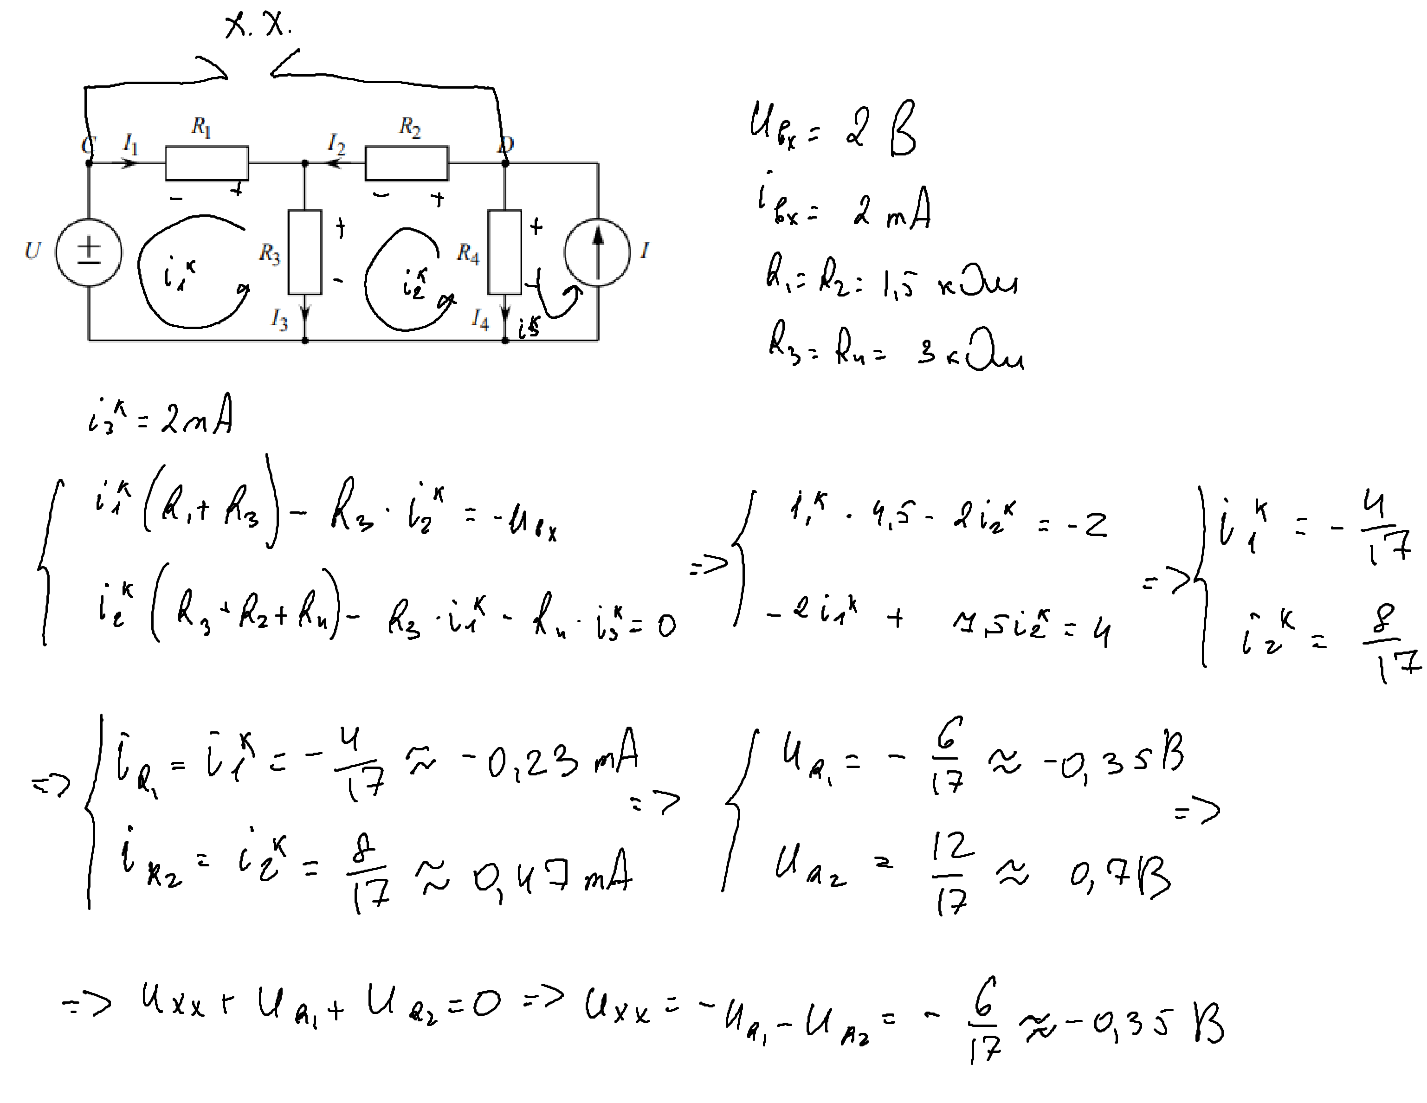 х.х.
C I₁ R₁ I₂ R₂ D
- + - +
U ± i₁ᴷ R₃ + - i₂ᴷ R₄ + - I
I₃ I₄ i₃ᴷ
Uвх = 2 В
iвх = 2 mA
R₁ = R₂ = 1,5 кОм
R₃ = R₄ = 3 кОм
i₃ᴷ = 2 mA
{ i₁ᴷ (R₁ + R₃) - R₃ · i₂ᴷ = -Uвх
i₂ᴷ (R₃ + R₂ + R₄) - R₃ · i₁ᴷ - R₄ · i₃ᴷ = 0
=> { i₁ᴷ · 4,5 - 2i₂ᴷ = -2
-2i₁ᴷ + 7,5i₂ᴷ = 4
=> { i₁ᴷ = - 4/17
i₂ᴷ = 8/17
=> { i_R₁ = i₁ᴷ = - 4/17 ≈ -0,23 mA
i_R₂ = i₂ᴷ = 8/17 ≈ 0,47 mA
=> { U_R₁ = - 6/17 ≈ -0,35 В
U_R₂ = 12/17 ≈ 0,7 В
=>
=> Uхх + U_R₁ + U_R₂ = 0 => Uхх = -U_R₁ - U_R₂ = - 6/17 ≈ -0,35 В